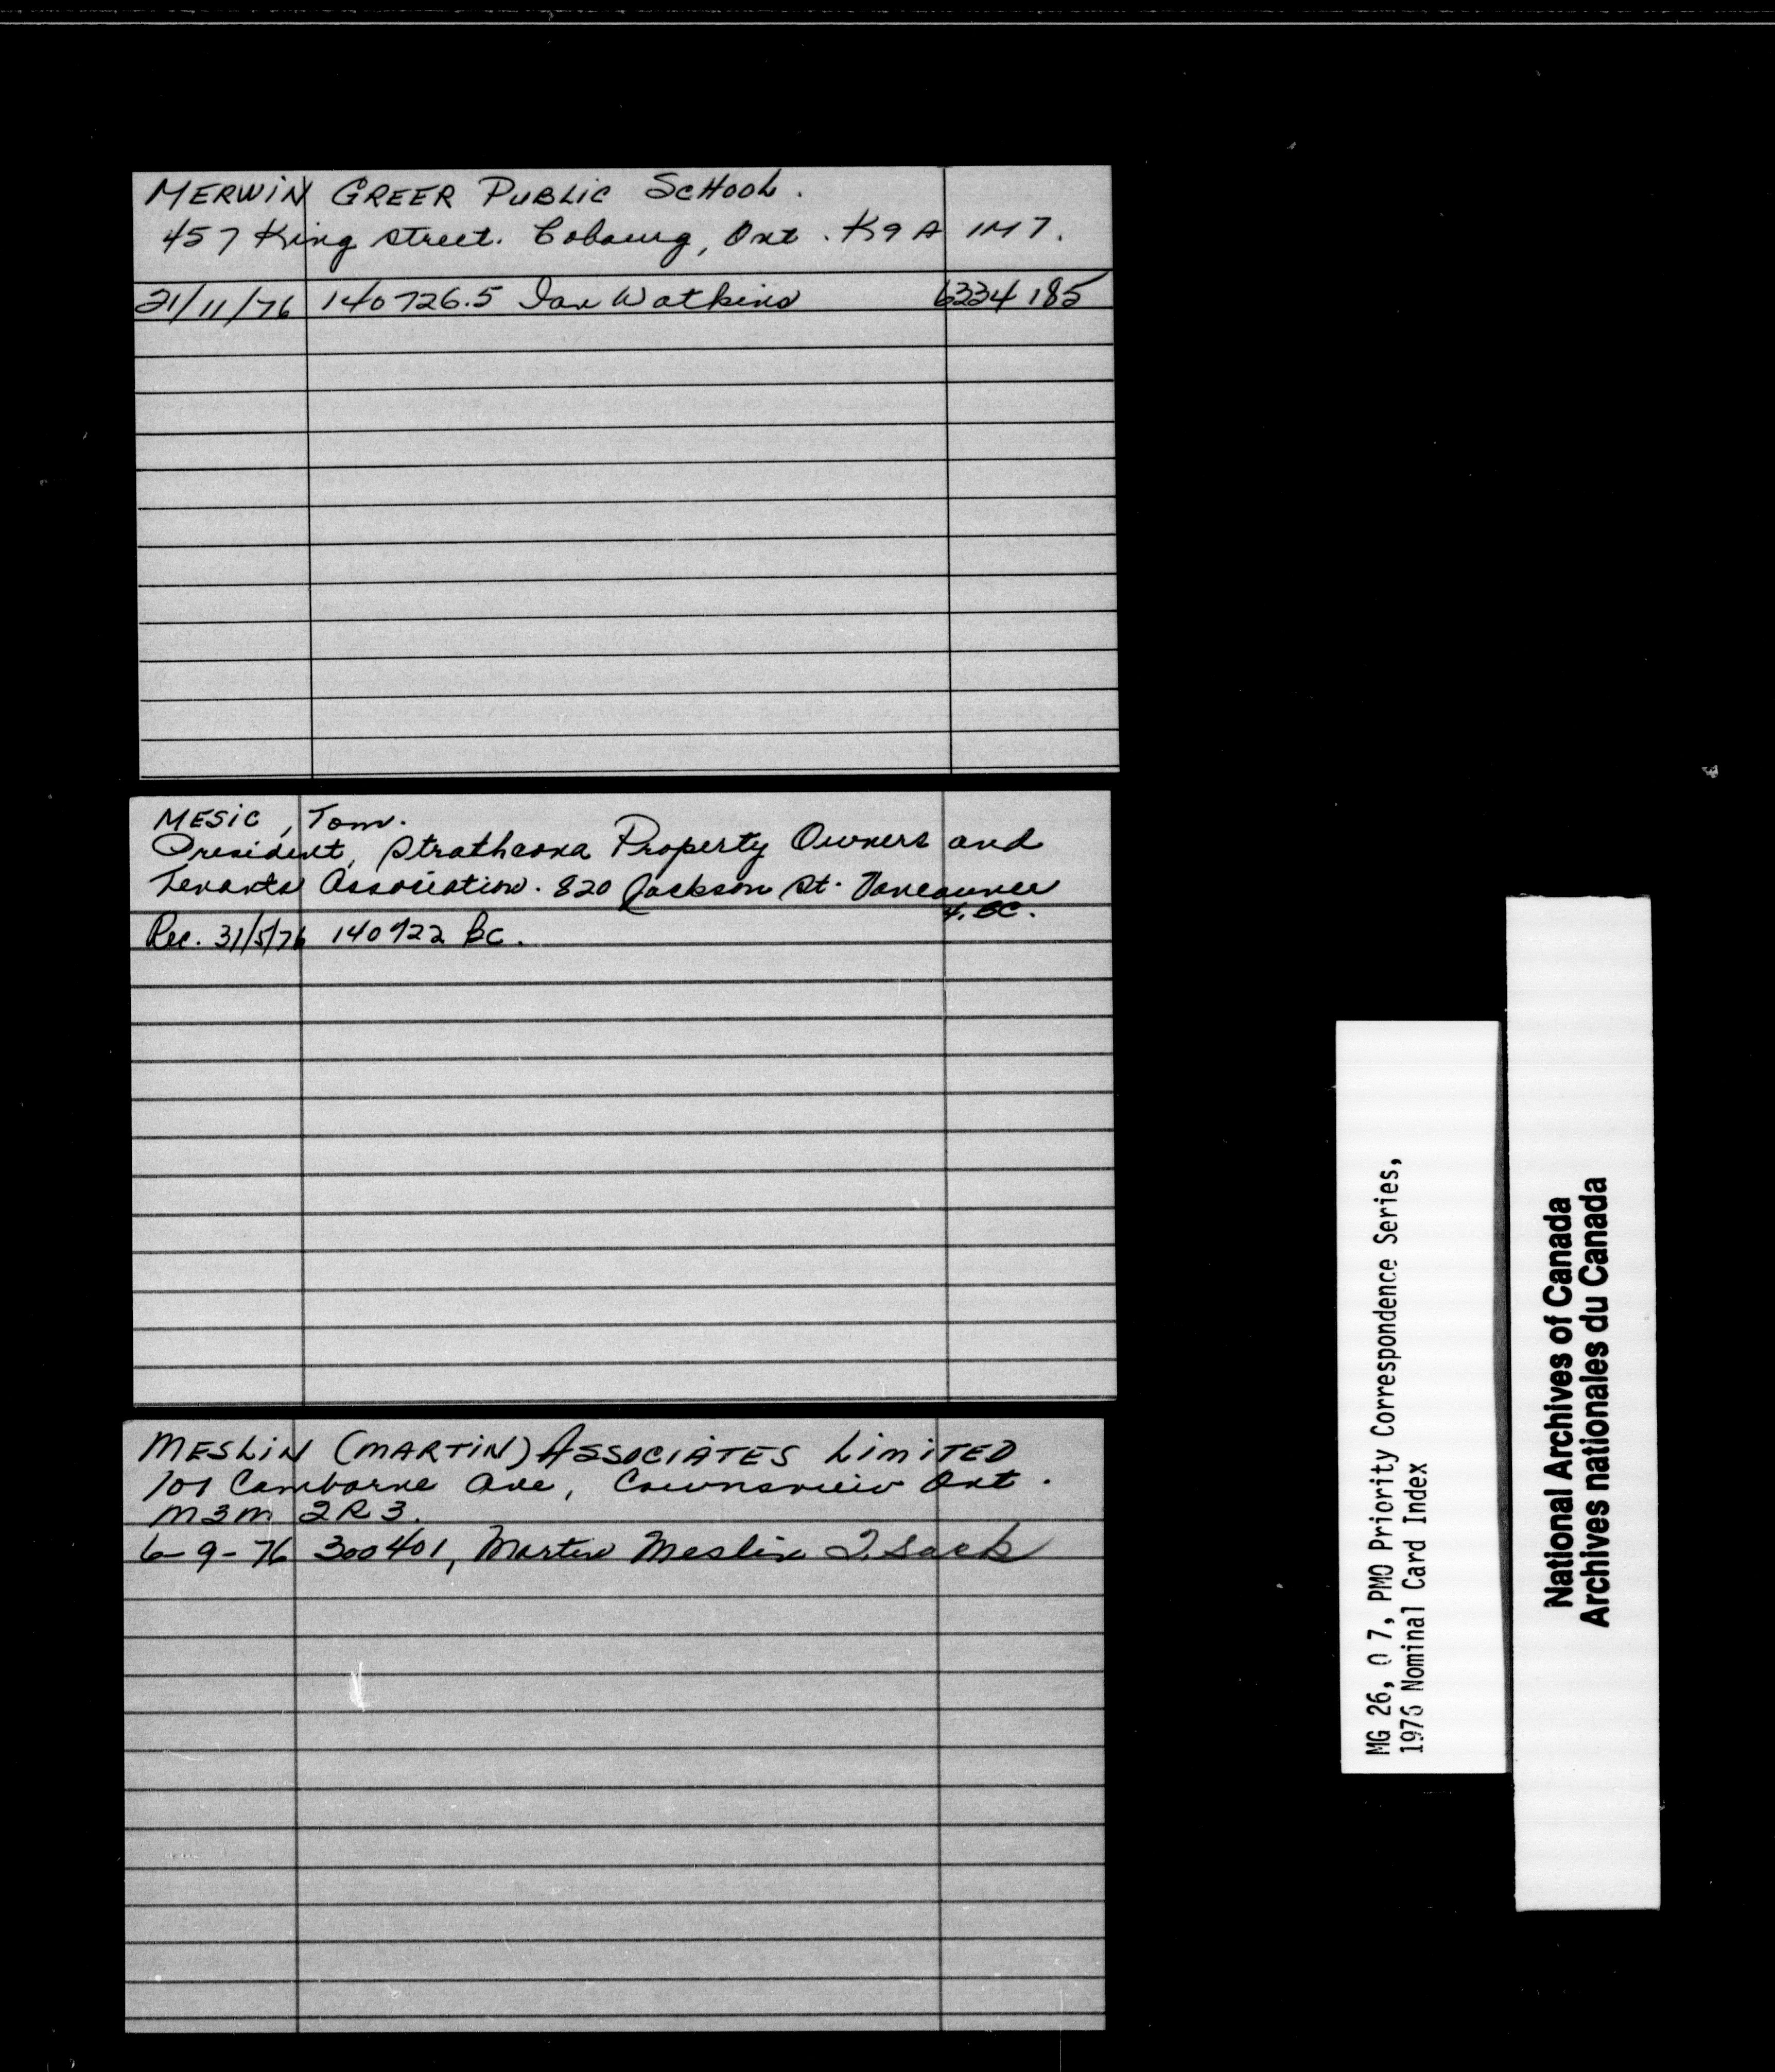 MERWIN GREER PUBLIC SCHOOL.
457 King street. Cobourg, Ont. K9A 1M7.
21/11/76 140726.5 Ian Watkins 6334185
MESIC, Tom.
President, Strathcona Property Owners and
Tenants Association. 820 Jackson St. Vancouver
4, BC.
Rec. 31/5/76 140722 BC.
MESLIN (MARTIN) ASSOCIATES LIMITED
101 Camborne Ave, Downsview Ont.
M3M 2R3.
6-9-76 300401, Martin Meslin
MG 26, O 7, PMO Priority Correspondence Series,
1976 Nominal Card Index
National Archives of Canada
Archives nationales du Canada